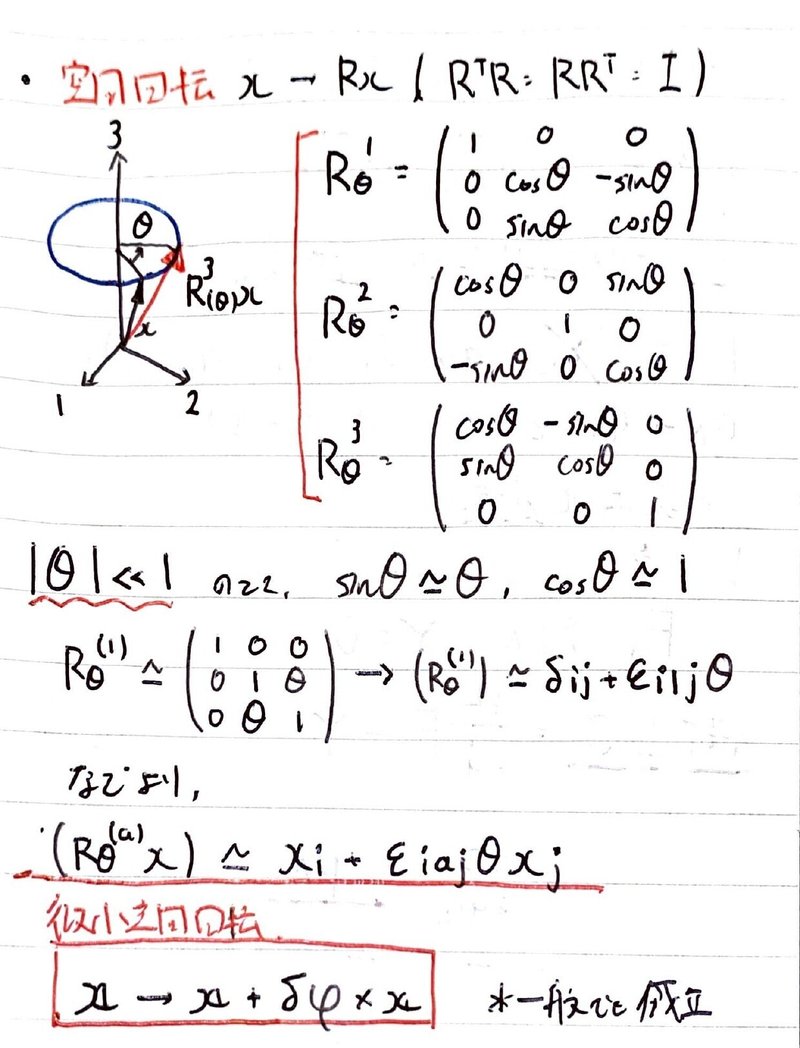 ・空間回転 x → Rx ( RᵀR = RRᵀ = I )
3
θ
R³(θ)x
x
1 2
Rθ¹ = ( 1 0 0
0 cosθ -sinθ
0 sinθ cosθ )
Rθ² = ( cosθ 0 sinθ
0 1 0
-sinθ 0 cosθ )
Rθ³ = ( cosθ -sinθ 0
sinθ cosθ 0
0 0 1 )
|θ| ≪ 1 のとき, sinθ ≃ θ, cosθ ≃ 1
Rθ⁽¹⁾ ≃ ( 1 0 0
0 1 θ
0 θ 1 ) → (Rθ⁽¹⁾) ≃ δij + εi1jθ
などより,
(Rθ⁽ᵃ⁾x) ≃ xi + εiajθxj
微小空間回転
x → x + δφ × x ※一般でも成立